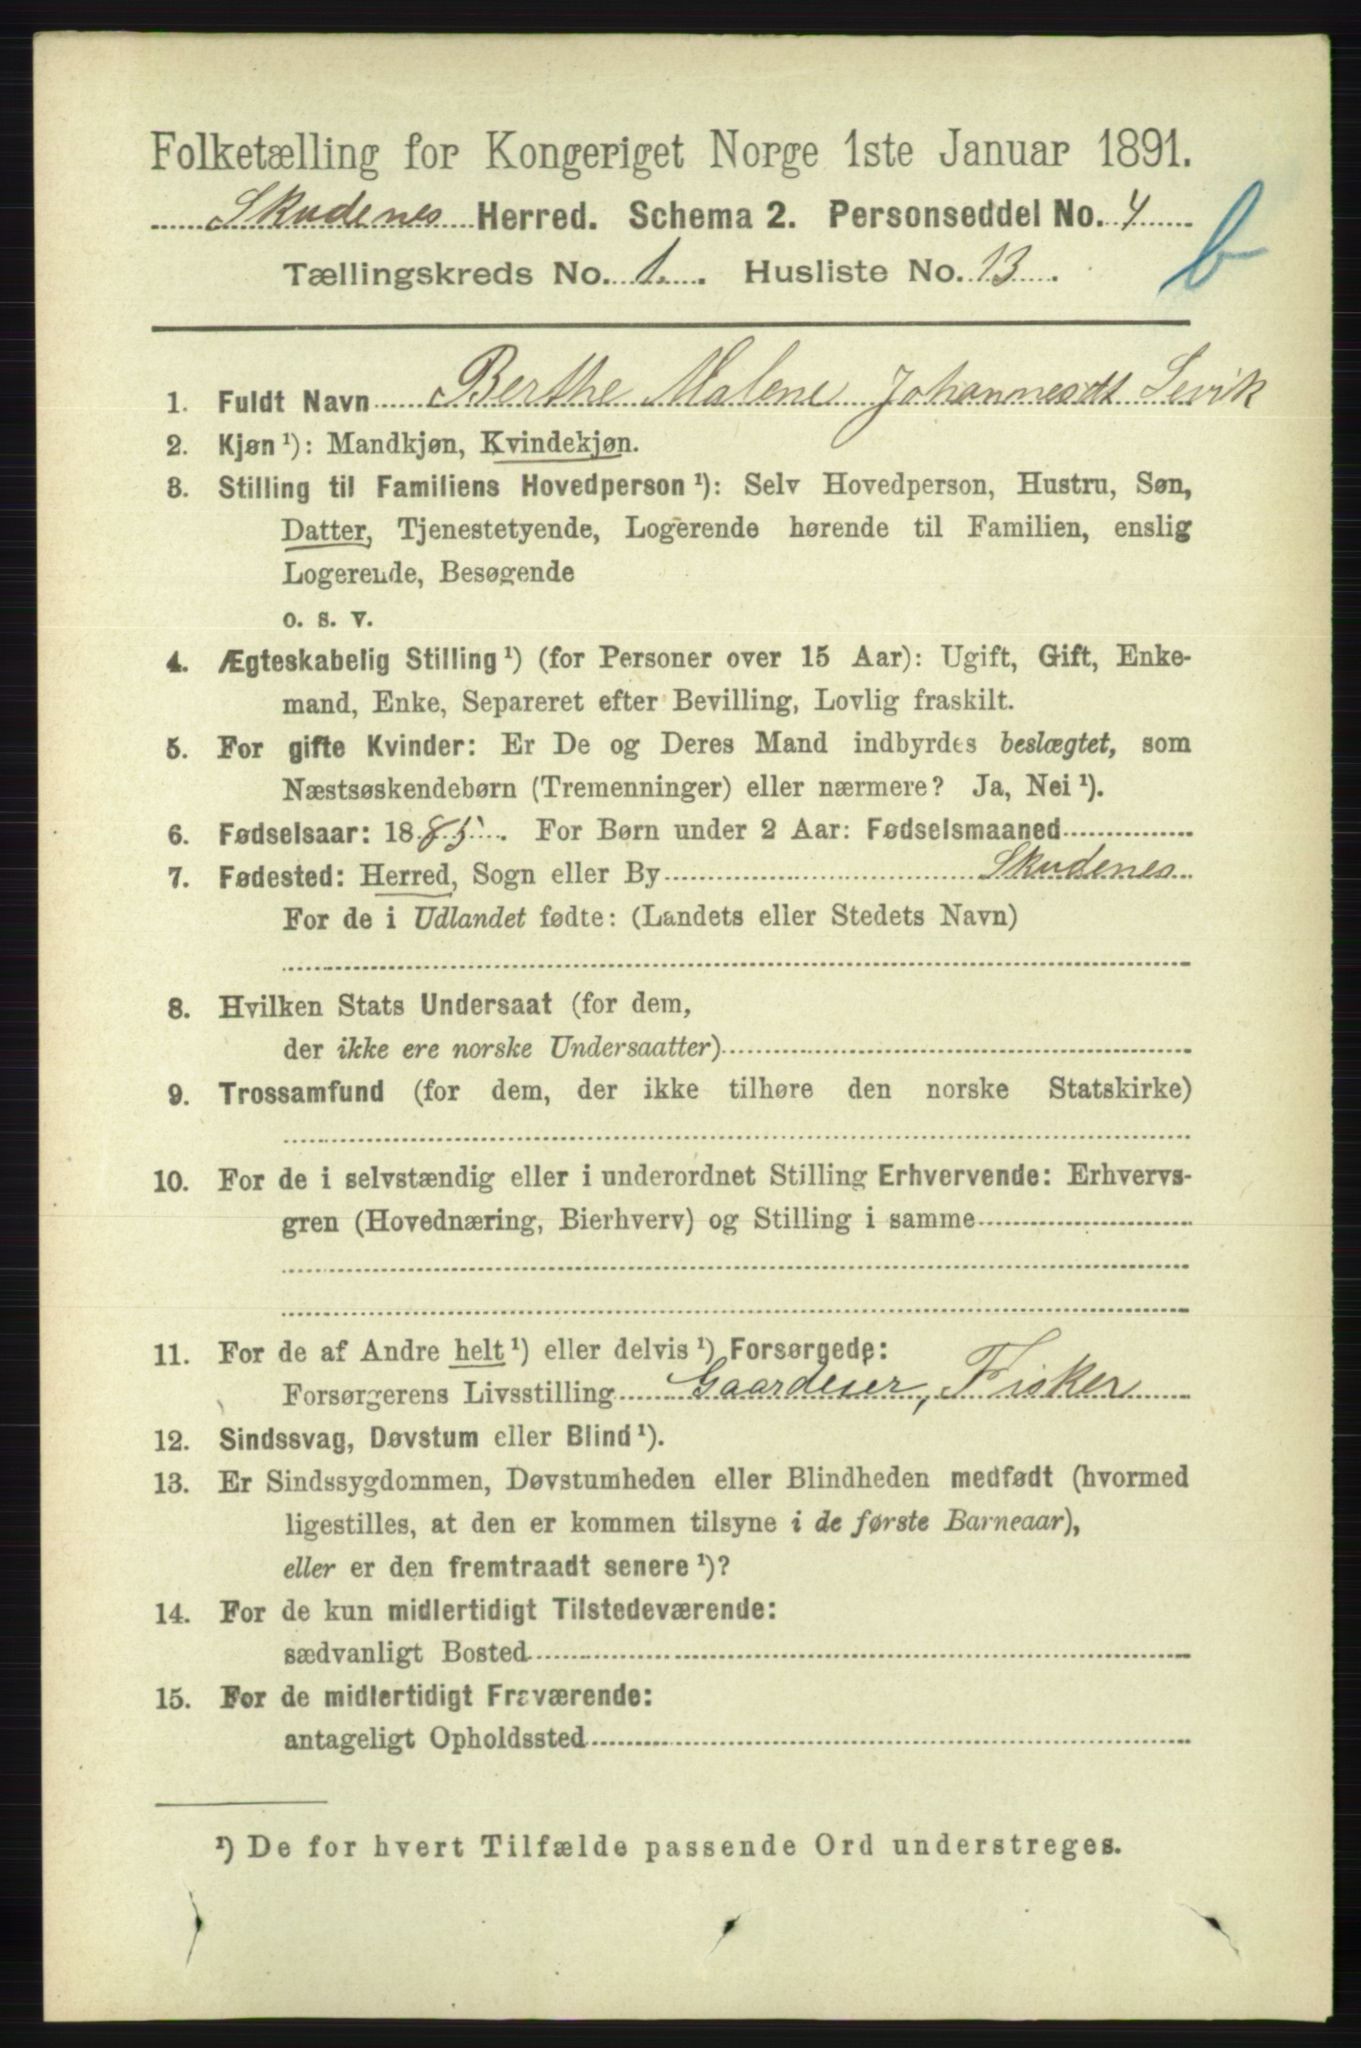 Folketælling for Kongeriget Norge 1ste Januar 1891.
Skudenes Herred. Schema 2. Personseddel No. 4
Tællingskreds No. 1. Husliste No. 13.
b
1. Fuldt Navn Berthe Malene Johannesdt Sevik
2. Kjøn ¹): Mandkjøn, Kvindekjøn.
3. Stilling til Familiens Hovedperson ¹): Selv Hovedperson, Hustru, Søn,
Datter, Tjenestetyende, Logerende hørende til Familien, enslig
Logerende, Besøgende
o. s. v.
4. Ægteskabelig Stilling ¹) (for Personer over 15 Aar): Ugift, Gift, Enke-
mand, Enke, Separeret efter Bevilling, Lovlig fraskilt.
5. For gifte Kvinder: Er De og Deres Mand indbyrdes beslægtet, som
Næstsøskendebørn (Tremenninger) eller nærmere? Ja, Nei ¹).
6. Fødselsaar: 1885. For Børn under 2 Aar: Fødselsmaaned
7. Fødested: Herred, Sogn eller By Skudenes
For de i Udlandet fødte: (Landets eller Stedets Navn)
8. Hvilken Stats Undersaat (for dem,
der ikke ere norske Undersaatter)
9. Trossamfund (for dem, der ikke tilhøre den norske Statskirke)
10. For de i selvstændig eller i underordnet Stilling Erhvervende: Erhvervs-
gren (Hovednæring, Bierhverv) og Stilling i samme
11. For de af Andre helt ¹) eller delvis ¹) Forsørgede:
Forsørgerens Livsstilling Gaardeier, Fisker
12. Sindssvag, Døvstum eller Blind ¹).
13. Er Sindssygdommen, Døvstumheden eller Blindheden medfødt (hvormed
ligestilles, at den er kommen tilsyne i de første Barneaar),
eller er den fremtraadt senere ¹)?
14. For de kun midlertidigt Tilstedeværende:
sædvanligt Bosted
15. For de midlertidigt Fraværende:
antageligt Opholdssted
¹) De for hvert Tilfælde passende Ord understreges.